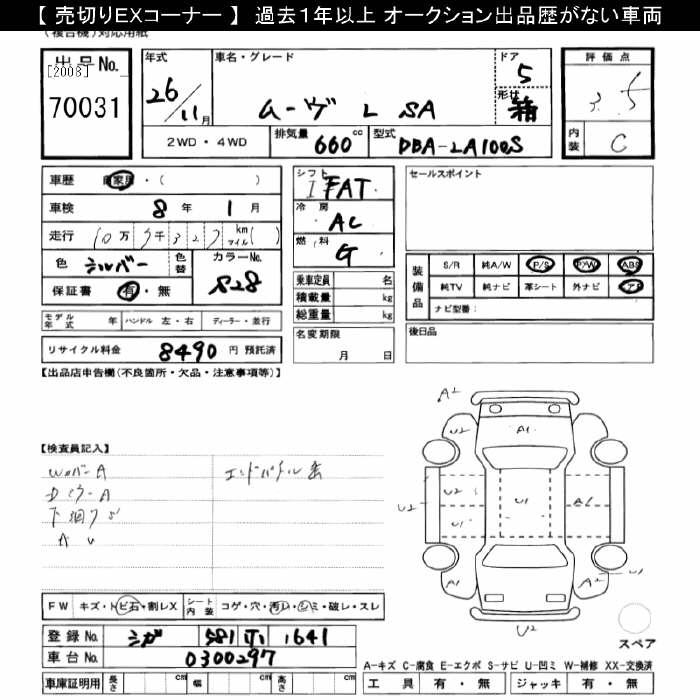 【 売切りEXコーナー 】 過去1年以上 オークション出品歴がない車両
(複合機)対応用紙
出品No.
[2008]
70031
年式
26/11月
車名・グレード
ムーヴ L SA
ドア
5
形状
箱
評価点
3.5
内装
C
2WD・4WD
排気量 660 cc
型式 DBA-LA100S
車歴 自家用・( )
車検 8年 1月
走行 10万 千 327 km マイル( )
色 シルバー 色替 カラーNo. S28
保証書 有・無
シフト IFAT
冷房 AC
燃料 G
乗車定員 名
積載量 kg
総重量 kg
セールスポイント
装備品 S/R 純A/W P/S P/W ABS
純TV 純ナビ 革シート 外ナビ
ナビ型番:
モデル年式 年 ハンドル 左・右 ディーラー・並行
リサイクル料金 8490 円 預託済
名変期限
月 日
後日品
【出品店申告欄(不良箇所・欠品・注意事項等)】
【検査員記入】
A
A
A U
A2
U2
A1
U2
U2
U1
A1
U2
U1
A1
U1
U2
スペア
FW キズ・トビ石・割レX シート内装 コゲ・穴・汚レ・シミ・破レ・スレ
登録No. シガ 581 ホ 1641
車台No. 0300297
A-キズ C-腐食 E-エクボ S-サビ U-凹ミ W-補修 XX-交換済
車庫証明用 長さ cm 幅 cm 高さ cm
工具 有・無 ジャッキ 有・無